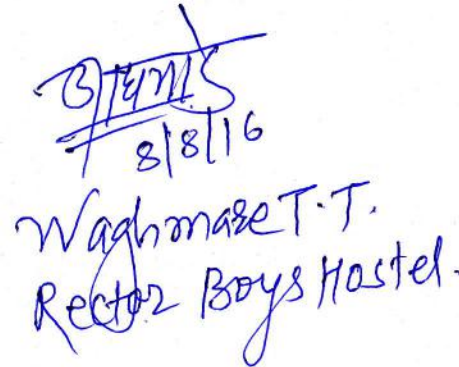 वाघमारे
8/8/16
Waghmare T.T.
Rector Boys Hostel.